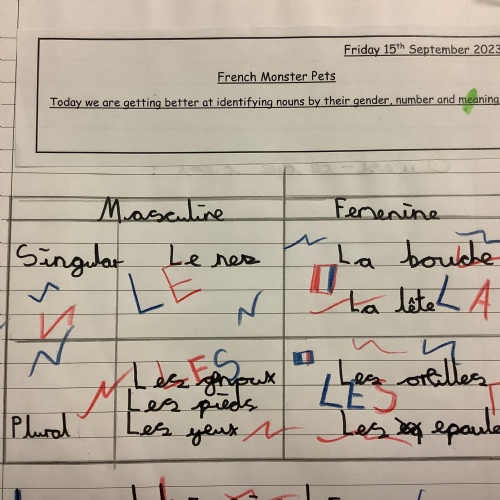 Friday 15th September 2023
French Monster Pets
Today we are getting better at identifying nouns by their gender, number and meaning
Masculine Femenine
Singular Le nez La bouche
LE La tête LA
Les genoux LES Les orielles
Les pieds LES
Plural Les yeux Les epaule